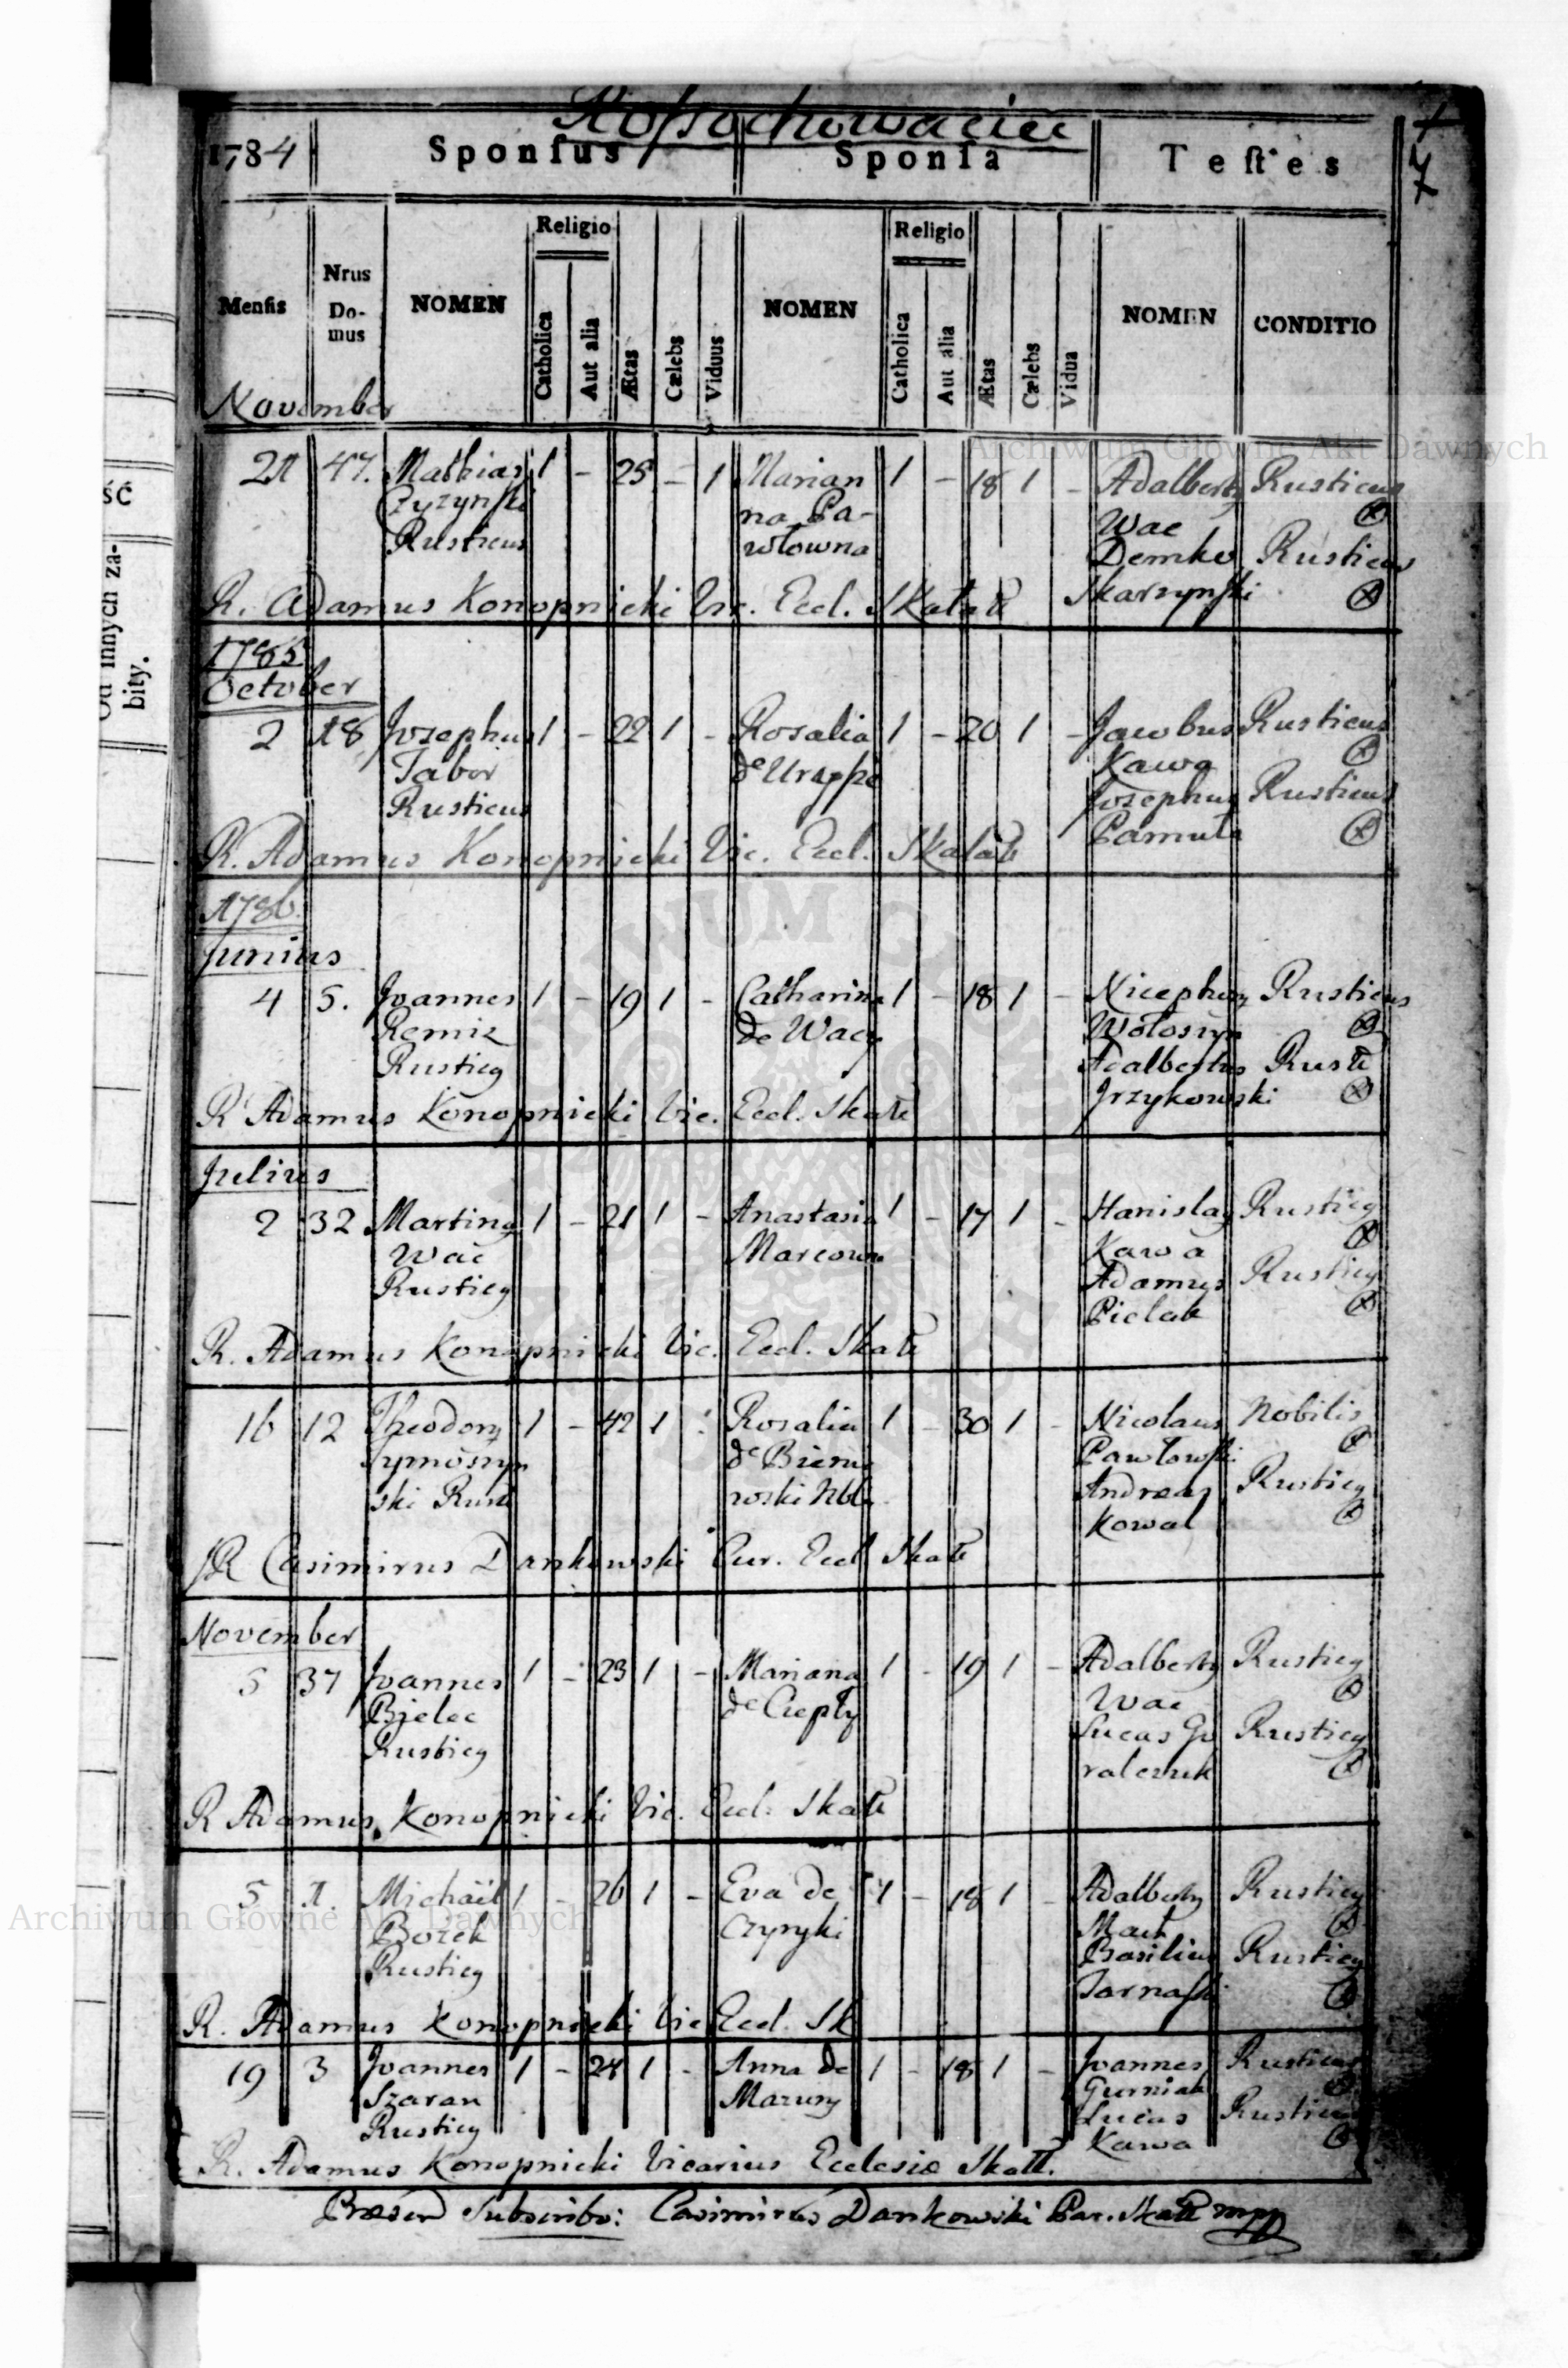 Rossochowaciec
7
1784 Sponſus Sponſa Teſtes
Menſis Nrus Domus NOMEN Religio Catholica Aut alia Ætas Cælebs Viduus NOMEN Religio Catholica Aut alia Ætas Cælebs Vidua NOMEN CONDITIO
November
21 47. Mathias 1 - 25 - 1 Marian 1 - 18 1 - Adalbertg Rusticus
Czyzynſki na Pa- Wac
Rusticus włowna Demko Rusticus
R. Adamus Konopnicki Vic. Eccl. Skalatt Skarzynſki
1785
October
2 18 Josephus 1 - 22 1 - Rosalia 1 - 20 1 - Jacobus Rusticus
Tabor de Kawa
Rusticus Josephus Rusticus
R. Adamus Konopnicki Vic. Eccl. Skalatt Pamuła
1786.
Junius
4 5. Joannes 1 - 19 1 - Catharina 1 - 18 1 - Rusticus
Remiz de Wacy Wołoszyn
Rusticg Adalbertus Rustt
R Adamus Konopnicki Vic. Eccl. Skatt Jrzykowski
Julius
2 32 Marting 1 - 21 1 - Anastasia 1 - 17 1 - Stanislag Rusticg
Wac Marcowna Kawa
Rusticg Adamus Rusticg
Pielak
R. Adamus Konopnicki Vic. Eccl. Skatt
16 12 Theodorg 1 - 42 1 Rosalia 1 - 30 1 - Nicolaus Nobilis
Tymoszyn de Pawłowſki
ski Rust Andreas Rusticg
Kowal
R Casimirus Dankowski Cur. Eccl Skatt
November
5 37 Joannes 1 - 23 1 - Mariana 1 - 19 1 - Adalbertg Rusticg
Bielec de Ciepły Wac
Rusticg Lucas Go Rusticg
ralczuk
R Adamus Konopnicki Vic. Eccl. Skatt
5 1. Michaël 1 - 26 1 - Eva de 1 - 18 1 - Adalbertg Rusticg
Bozek Czyzyki
Rusticg Basilius Rusticg
Tarnaſki
R. Adamus Konopnicki Vic Eccl. Sk
19 3 Joannes 1 - 24 1 - Anna de 1 - 18 1 - Joannes Rusticus
Szaran Mazury Gurniak
Rusticg Lucas Rusticus
Kawa
R. Adamus Konopnicki Vicarius Ecclesiæ Skatt.
Subscribo: Casimirus Dankowski Par. Skatt mpp
ŚĆ
Od innych za-
bity.
Archiwum Główne Akt Dawnych
Archiwum Główne Akt Dawnych